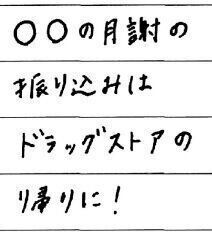 ○○の月謝の
振り込みは
ドラッグストアの
帰りに！